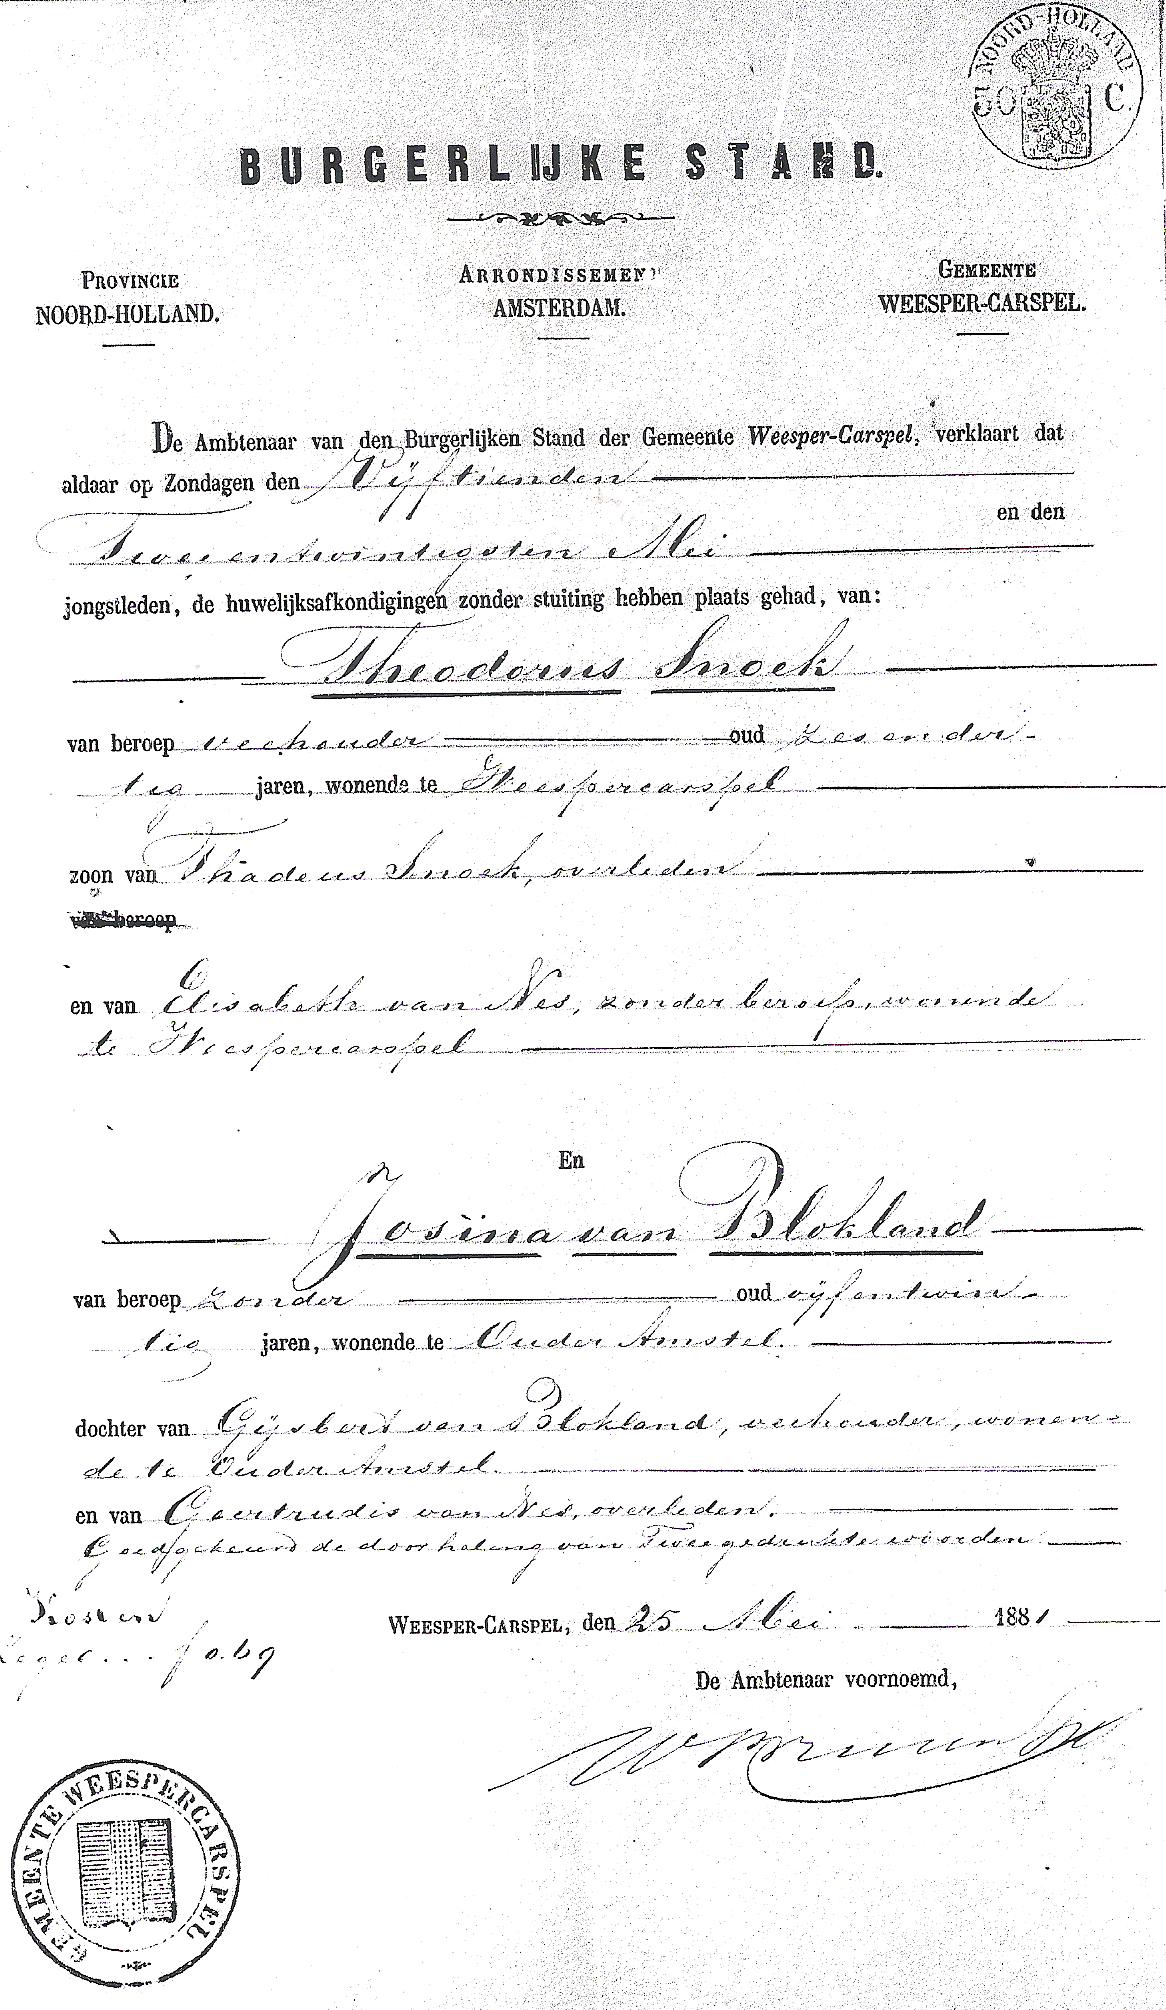 NOORD-HOLLAND
50 C.
BURGERLIJKE STAND.
PROVINCIE
NOORD-HOLLAND.
ARRONDISSEMENT
AMSTERDAM.
GEMEENTE
WEESPER-CARSPEL.
De Ambtenaar van den Burgerlijken Stand der Gemeente Weesper-Carspel, verklaart dat
aldaar op Zondagen den Vijftienden
en den
Tweeentwintigsten Mei
jongstleden, de huwelijksafkondigingen zonder stuiting hebben plaats gehad, van:
Theodorus Snoek
van beroep veehouder oud zesender-
tig jaren, wonende te Weespercarspel
zoon van Thadeus Snoek, overleden
van beroep
en van Elisabeth van Nes, zonder beroep, wonende
te Weespercarspel
En
Josina van Blokland
van beroep zonder oud vijfentwin-
tig jaren, wonende te Ouder Amstel.
dochter van Gijsbert van Blokland, veehouder, wonen-
de te Ouder Amstel.
en van Geertrudis van Nes, overleden.
Goedgekeurd de doorhaling van Twee gedrukte woorden
Kosten
Zegel... f 0.69
WEESPER-CARSPEL, den 25 Mei 1881
De Ambtenaar voornoemd,
GEMEENTE WEESPERCARSPEL